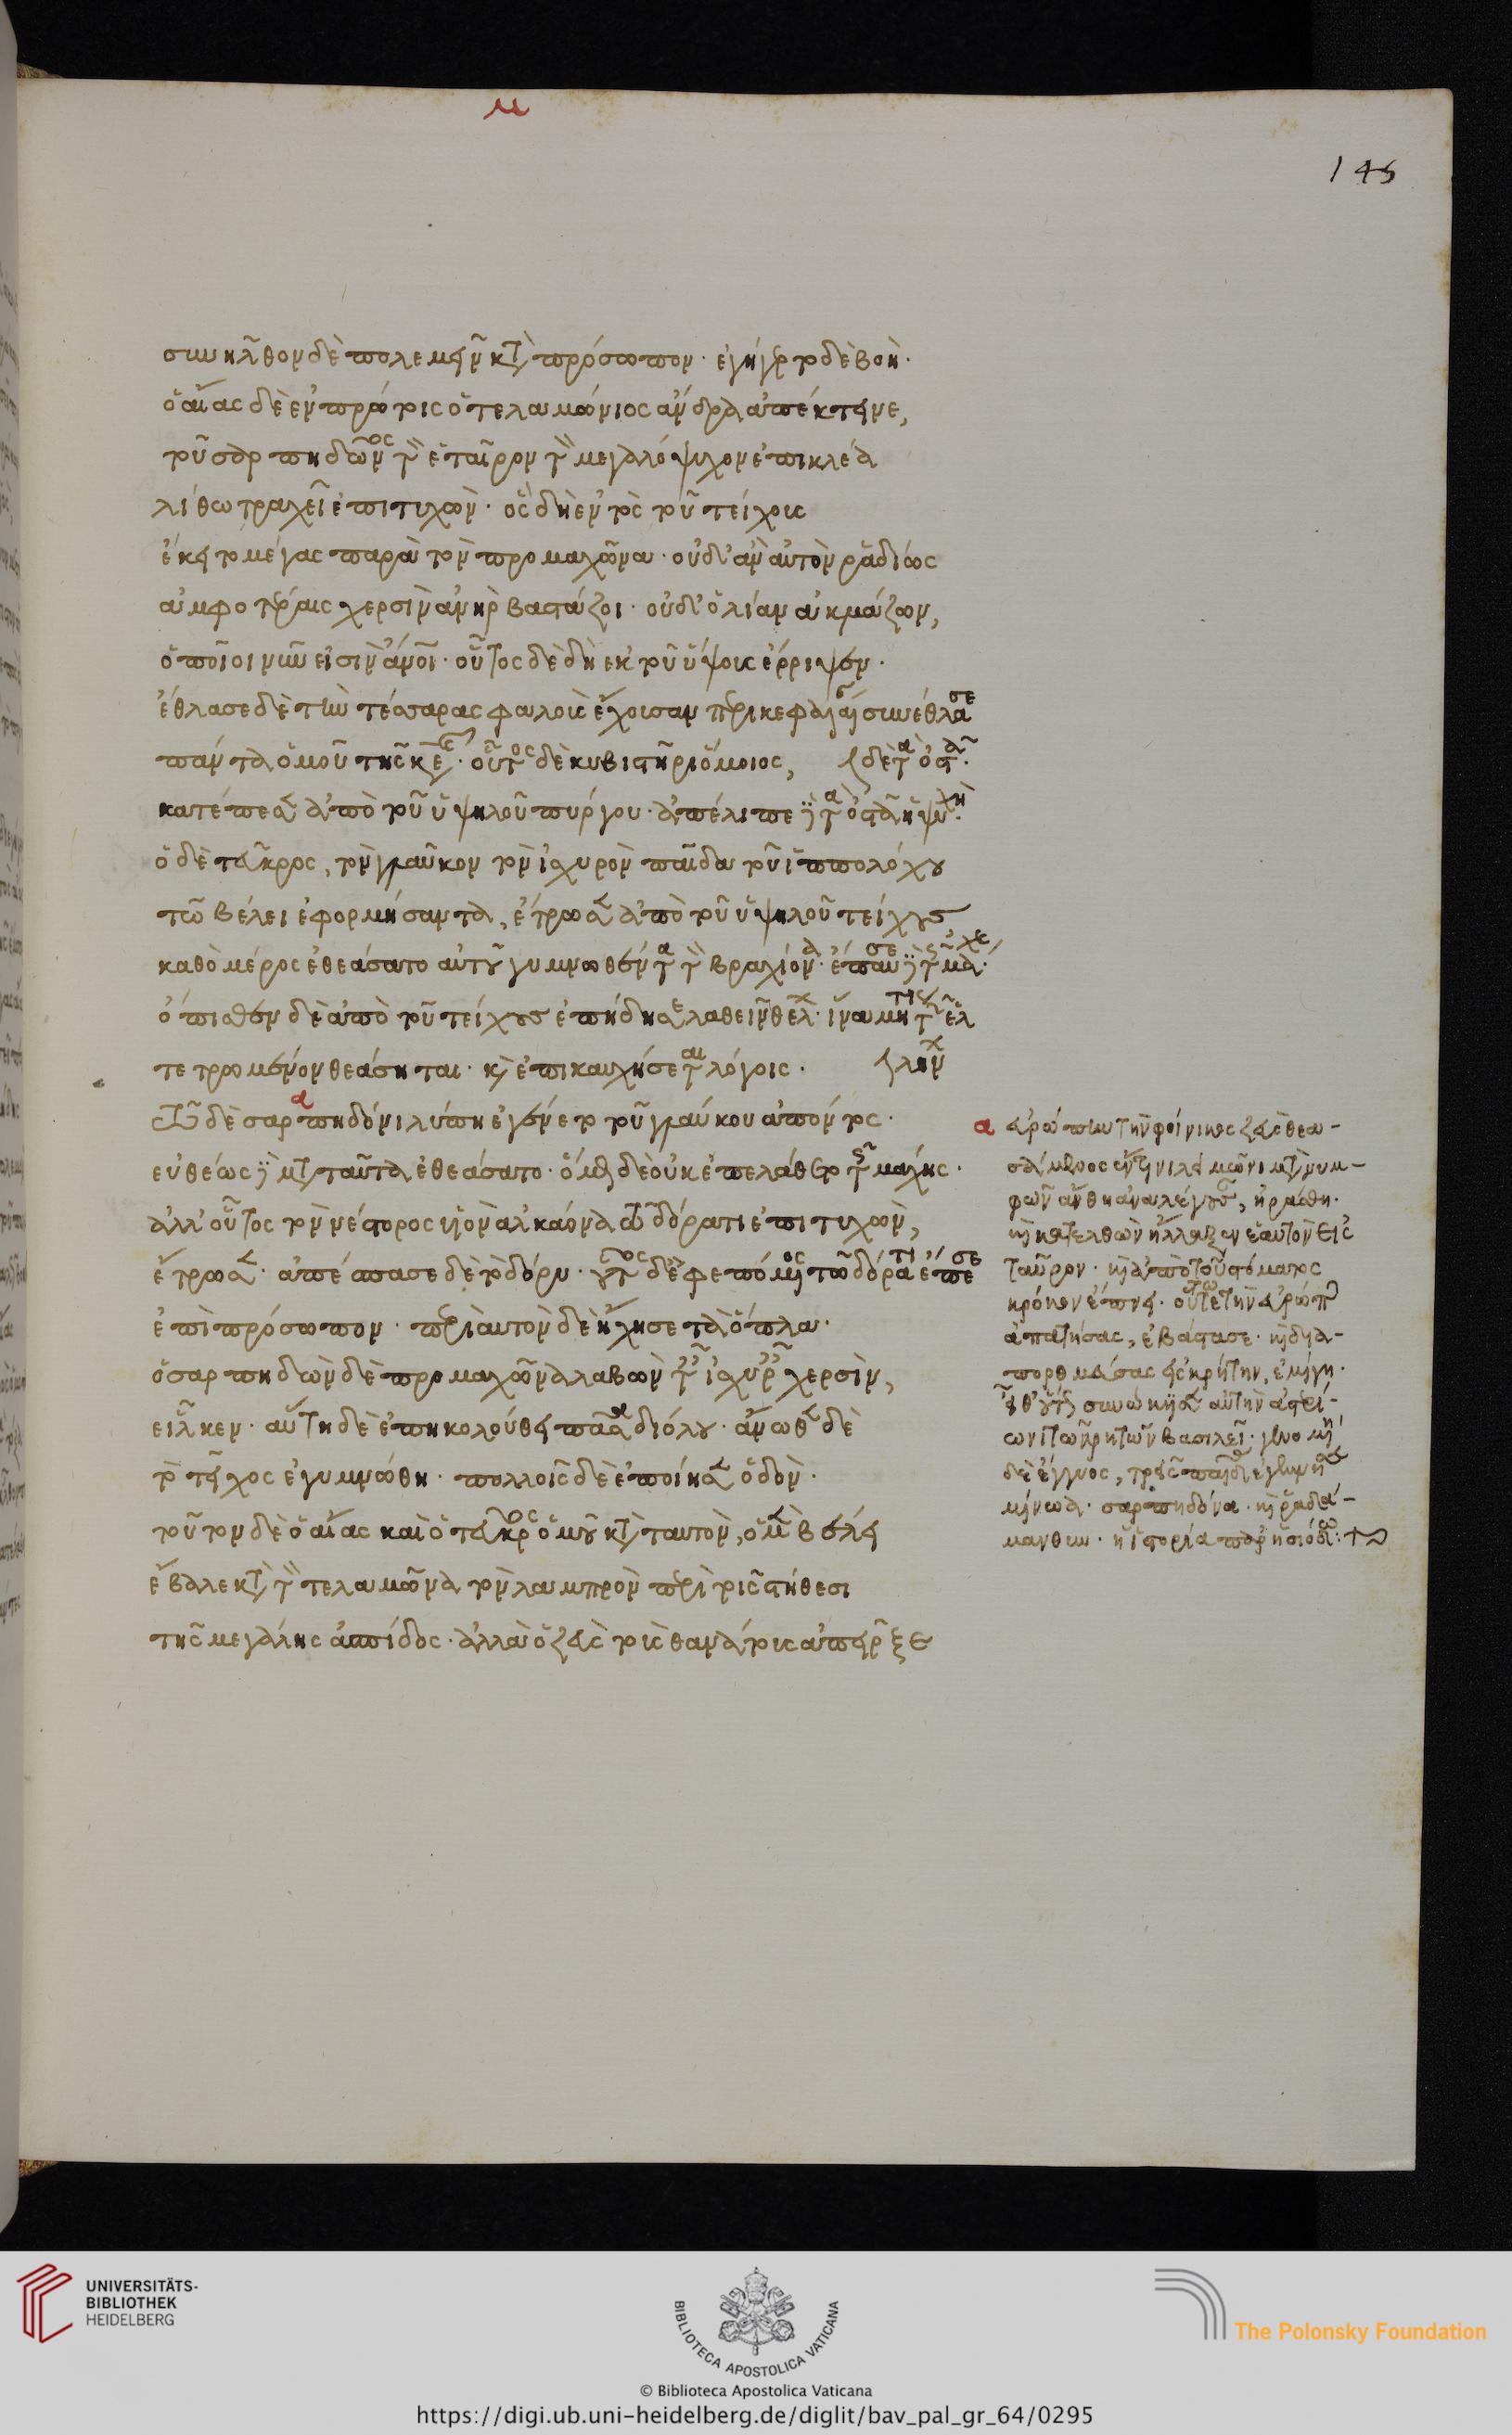 μ
145
συνῆλθον δὲ πολεμεῖν κατὰ πρόσωπον· ἐγήγερτο δὲ βοή·
ὁ αἴας δὲ ἐν πρώτοις ὁ τελαμώνιος ἄνδρα ἀπέκτεινε,
τοῦ σαρπηδῶνος τὸν ἑταῖρον τὸν μεγαλόψυχον ἐπικλέα
λίθω τραχεῖ ἐπιτυχών· ὃς δὴ ἐντὸς τοῦ τείχους
ἔκειτο μέγας παρὰ τὸν προμαχῶνα· οὐδ' ἂν αὐτὸν ῥαδίως
ἀμφοτέραις χερσὶν ἀνὴρ βαστάζοι· οὐδ' ὁ λίαν ἀκμάζων,
ὁποῖοι νῦν εἰσὶν ἄνοι· οὗτος δὲ δὴ ἐκ τοῦ ὕψους ἔρριψεν·
ἔθλασε δὲ τὴν τέσσαρας φάλους ἔχουσαν περικεφαλαίαν συνέθλασε
πάντα ὁμοῦ τῆς κε· οὗτος δὲ κυβιστῆρι ὅμοιος, δὲ τὰ ὀστᾶ·
κατέπεσεν ἀπὸ τοῦ ὑψηλοῦ πύργου· ἀπέλιπε καὶ τὰ ὀστᾶ ἡ ψυχή·
ὁ δὲ τεῦκρος, τὸν γλαῦκον τὸν ἰσχυρὸν παῖδα τοῦ ἱππολόχου
τῶ βέλει ἐφορμήσαντα, ἔτρωσεν ἀπὸ τοῦ ὑψηλοῦ τείχους
καθὸ μέρος ἐθεάσατο αὐτοῦ γυμνωθέντα τὸν βραχίονα· ἔπαυσε καὶ τῆς μάχης·
ὄπισθεν δὲ ἀπὸ τοῦ τείχους ἐπήδησε λαθεῖν θέλων· ἵνα μή τις τῶν ἑλ
τετρωμένον θεάσηται· καὶ ἐπικαυχήσεται λόγοις· λήνων
τῶ δὲ σαρπηδόνι λύπη ἐγένετο τοῦ γλαύκου ἀπόντος·
εὐθέως καὶ μετὰ ταῦτα ἐθεάσατο· ὅμως δὲ οὐκ ἐπελάθετο τῆς μάχης·
ἀλλ' οὗτος τὸν νέστορος υἱὸν ἀλκμάονα τῶ δόρατι ἐπιτυχών,
ἔτρωσεν· ἀπέσπασε δὲ τὸ δόρυ· οὗτος δὲ ἐφεπόμενος τῶ δόρατι ἔπεσε
ἐπὶ πρόσωπον· περὶ αὐτὸν δὲ ἤχησε τὰ ὅπλα·
ὁ σαρπηδὼν δὲ προμαχῶνα λαβὼν τῶν ἰσχυρῶν χερσίν,
εἷλκεν· αὕτη δὲ ἐπηκολούθει πᾶσα διόλου· ἄνωθεν δὲ
τὸ τεῖχος ἐγυμνώθη· πολλοῖς δὲ ἐποίησεν ὁδόν·
τοῦτον δὲ ὁ αἴας καὶ ὁ τεῦκρος ὁμοῦ κατὰ ταυτόν, ὁ μὲν βέλει
ἔβαλε κατὰ τὸν τελαμῶνα τὸν λαμπρὸν περὶ τοῖς στήθεσι
τῆς μεγάλης ἀσπίδος· ἀλλὰ ὁ ζεὺς τοὺς θανάτους ἀπεῖρξε
α εὐρώπην τὴν φοίνικος ζεὺς θεα-
σάμενος ἔν τινι λειμῶνι μετὰ νυμ-
φῶν ἄνθη ἀναλέγουσαν, ἠράσθη·
καὶ κατελθὼν ἤλλαξεν ἑαυτὸν εἰς
ταῦρον· καὶ ἀπὸ τοῦ στόματος
κρόκον ἔπνει· οὕτω τε τὴν εὐρώπην
ἀπατήσας, ἐβάστασε· καὶ δια-
πορθμεύσας εἰς κρήτην, ἐμίγη·
εἶθ' οὕτως συνώκισεν αὐτὴν ἀστερί-
ωνι τῶ κρητῶν βασιλεῖ· γενομένη
δὲ ἔγγυος, τρεῖς παῖδας ἐγέννησε
μίνωα· σαρπηδόνα· καὶ ῥαδά-
μανθυν· ἡ ἱστορία παρ' ἡσιόδω:
UNIVERSITÄTS-
BIBLIOTHEK
HEIDELBERG
BIBLIOTECA APOSTOLICA VATICANA
The Polonsky Foundation
© Biblioteca Apostolica Vaticana
https://digi.ub.uni-heidelberg.de/diglit/bav_pal_gr_64/0295